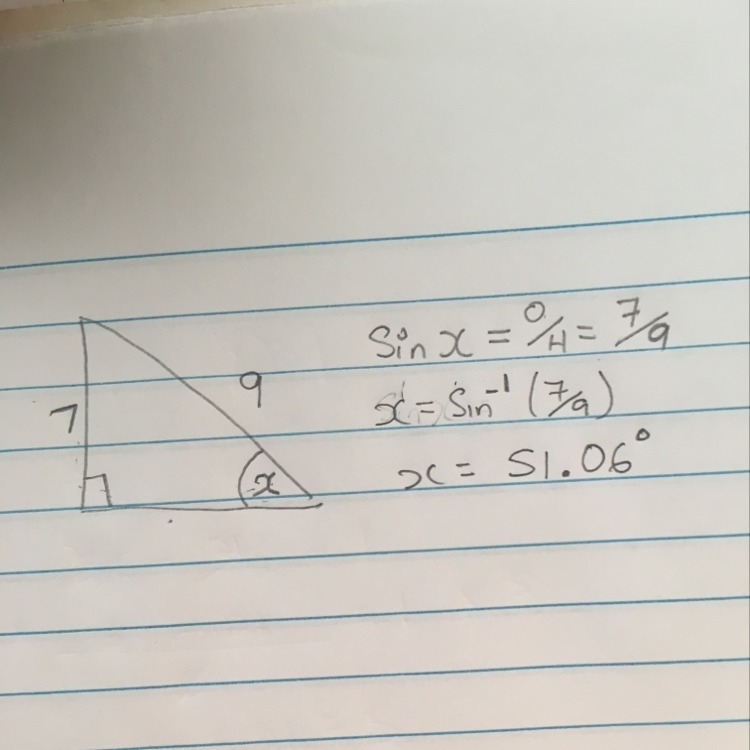 7
9
x
Sin x = O/H = 7/9
x = Sin⁻¹ (7/9)
x = 51.06°